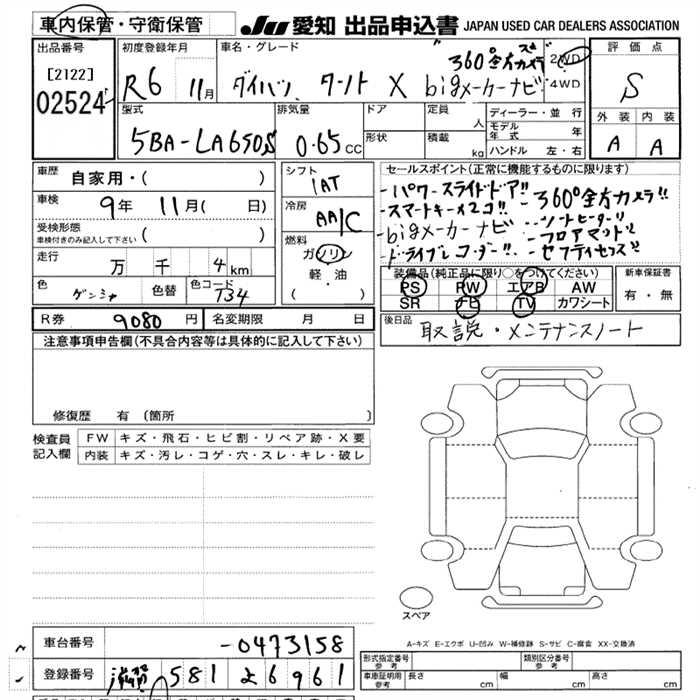 車内保管・守衛保管 JU 愛知 出品申込書 JAPAN USED CAR DEALERS ASSOCIATION
出品番号 初度登録年月 車名・グレード 評価点
[2122] R6 11月 ダイハツ タント X 360°全方カメラ bigメーカーナビ 2WD 4WD S
02524
型式 排気量 ドア 定員 人 ディーラー・並行 外装 内装
5BA-LA650S 0.65 CC 形状 積載 kg モデル年式 年 A A
ハンドル 左・右
車歴 自家用・( ) シフト 1AT セールスポイント(正常に機能するものに限ります)
車検 9年 11月( 日) 冷房 AA/C -パワースライドドア!! -360°全方カメラ!!
受検形態 -スマートキー×2コ!! -シートヒーター!!
車検付きのみ記入して下さい ( ) 燃料 -bigメーカーナビ -フロアマット!!
走行 万 千 4km ガソリン -ドライブレコーダー!!
軽・油 装備品(純正品に限り○をつけてください) 新車保証書
色 色替 色コード T34 ( ) PS PW エアB AW 有・無
SR ナビ TV カワシート
R券 9080円 名変期限 月 日 後日品 取説・メンテナンスノート
注意事項申告欄(不具合内容等は具体的に記入して下さい)
修復歴 有 (箇所
検査員記入欄 FW キズ・飛石・ヒビ割・リペア跡・X要
内装 キズ・汚レ・コゲ・穴・スレ・キレ・破レ
スペア
A-キズ E-エクボ U-凹み W-補修跡 S-サビ C-腐食 XX-交換済
車台番号 -0473158
登録番号 滋賀 581 26961
形式指定番号 参考 類別区分番号 参考
車庫証明用 参考 長さ cm 幅 cm 高さ cm